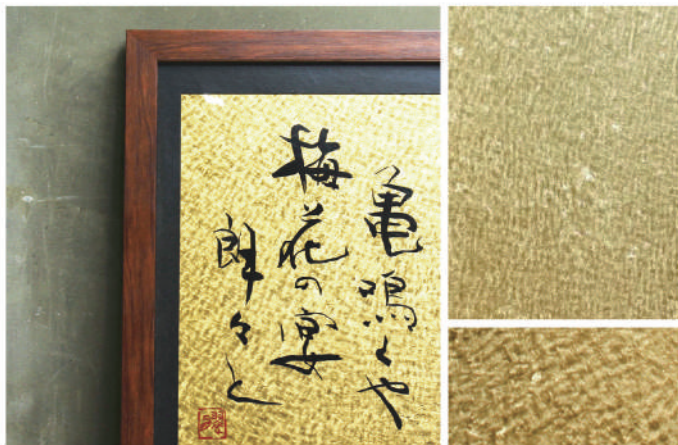 亀鳴くや
梅花の宴
朗々と